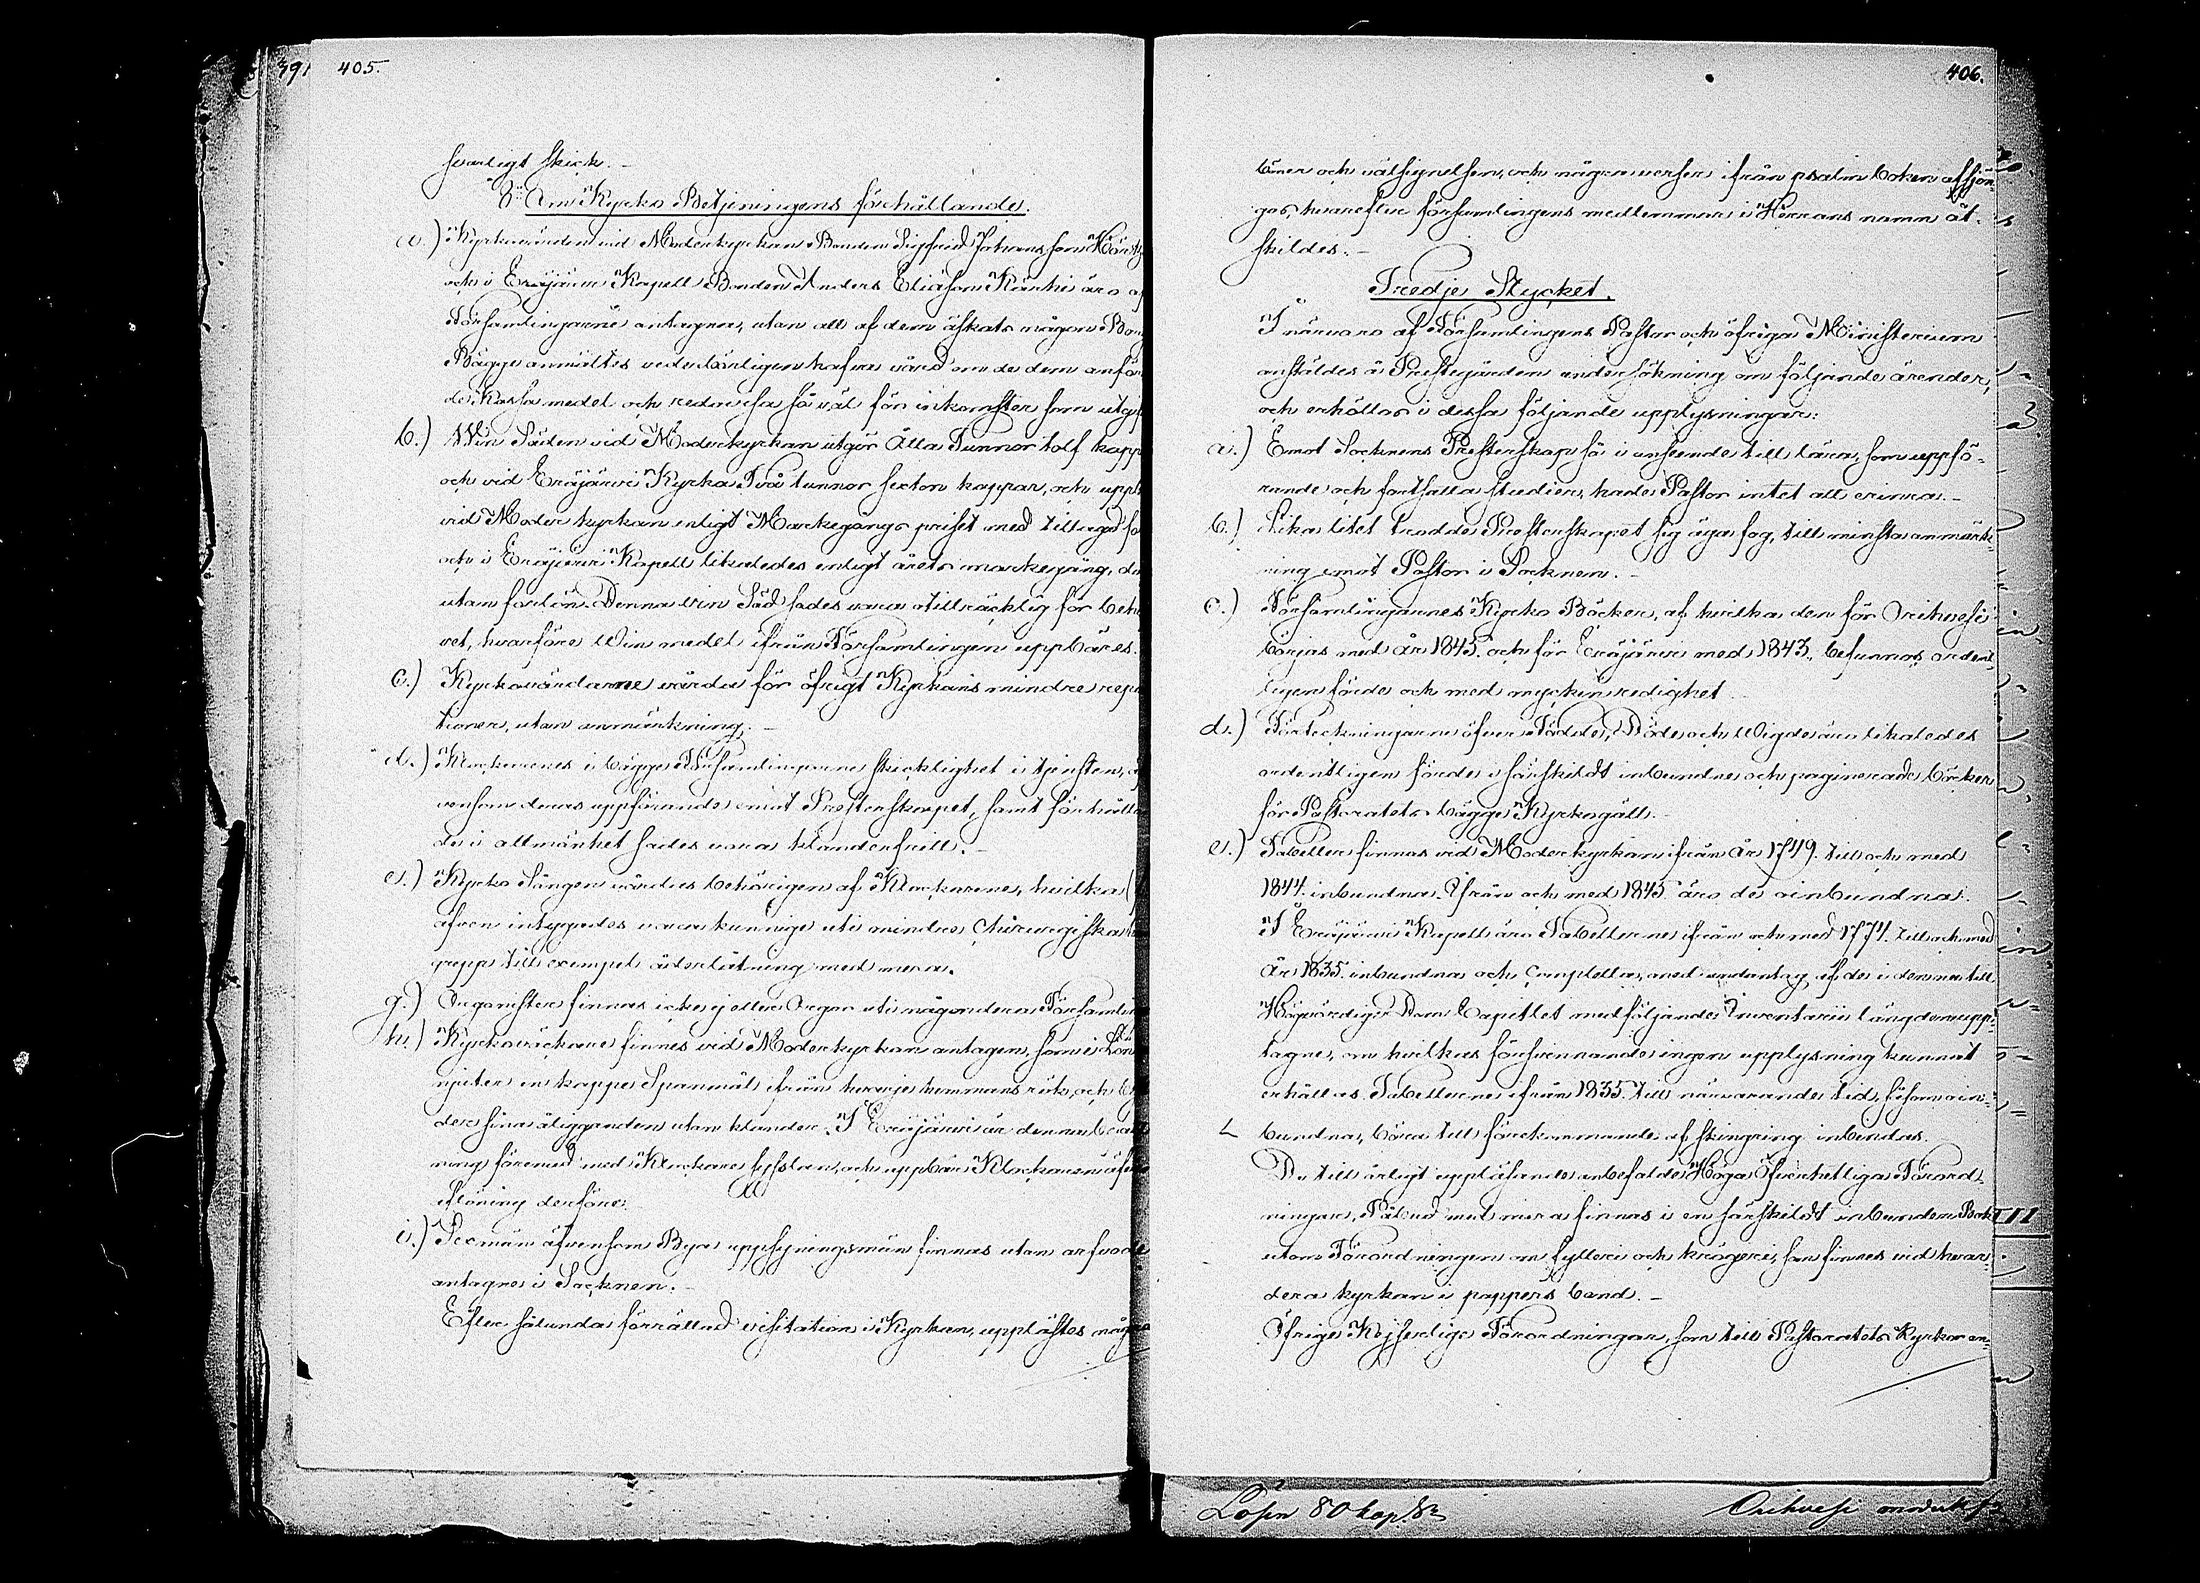 391 405.
svarligt skick. –
8:o Om Kyrko Betjeningens förhållande.
a.) Kyrkovärden vid Moderkyrkan Bonden Sigfrid Johansson
och i Eräjärvi Kapell Bonden Anders Eliäson Kärki äro af
Församlingarne antagne, utan att af dem äskats någon
Bägge anmältes vederbörligen hafva vård om de dem anför
de Kassa medel och redovisa så väl för inkomster som utgif
b.) Win Säden vid Moderkyrkan utgör Åtta Tunnor tolf kapp
och vid Eräjärvi Kyrka Två tunnor sexton kappar, och
vid Moder kyrkan enligt Markegångs priset med tillagd
och i Eräjärvi Kapell likaledes enligt årets markegång,
utan forlön. Denna vin Säd sades vara otillräcklig för beho
vet, hvarföre Win medel ifrån Församlingen uppbäres.
c.) Kyrkovärdarne vårda för öfrigt Kyrkans mindre repa
tioner, utan anmärkning. –
d.) Klockarenes i bägge Församlingarne skicklighet i tjensten,
vensom deras uppförande emot Presterskapet, samt förhålla
de i allmänhet sades vara klanderfritt. –
e.) Kyrko Sången vårdas behörigen af Klockarene, hvilka
äfven intygades vara kunnige uti mindre Chirurgiska
grepp till exempel åderlåtning med mera.
g.) Organister finnas icke ej eller Orgor uti någondera Församlin
h.) Kyrkoväckare finnes vid Moderkyrkan antagen, som i Lön
njuter en kappe Spanmål ifrån hvarje hemmans rök, och
der sina åligganden utan klander. I Eräjärvi är denna
ning förenad med Klockare sysslan, och uppbär Klockaren
aflöning derföre.
i.) Sexmän äfvensom Bya uppsyningsmän finnas utan arfvode
antagne i Socknen. –
Efter sålunda förrättad visitation i Kyrkan, upplästes någr
406.
böner och välsignelsen, och några verser ifrån psalm boken afsjön
gos, hvarefter församlingens medlemmar i Herrans namn åt-
skildes. –
Tredje Stycket.
I närvaro af Församlingens Pastor och öfriga Ministerium
anstäldes å Prestegården undersökning om följande ärender,
och erhöllos i dessa följande upplysningar:
a.) Emot Socknens Presterskap så i anseende till lära, som uppfö-
rande och fortsatta studier, hade Pastor intet att erinra. –
b.) Lika litet trodde Presterskapet sig äga fog, till minsta anmärk-
ning emot Pastor i Socknen. –
c.) Församlingarnes Kyrko Böcker, af hvilka den för Orihvesi
börjas med år 1845. och för Eräjärvi med 1843., befunnos ordent-
ligen förde och med mycken redighet.
d.) Förteckningarne öfver Födde, Döde och Wigde äro likaledes
ordentligen förde i särskildt inbundne och paginerade böcker
för Pastoratets bägge Kyrkogäll. –
e.) Tabeller finnas vid Moderkyrkan ifrån år 1749. till och med
1844. inbundna. Ifrån och med 1845 äro de oinbundna.
I Eräjärvi Kapell äro Tabellerne ifrån och med 1774. till och med
år 1835. inbundna och Completta, med undantag af de i denna till
Högvördiga Dom Capitlet medföljande Inventarii längd upp-
tagne, om hvilkas försvinnande ingen upplysning kunnat
erhållas. Tabellerne ifrån 1835. till närvarande tid, såsom oin-
bundna, böra till förekommande af skingring inbindas.
De till årligt uppläsande anbefalde Höga Öfverhetliga Förord-
ningar, Påbud med mera finnas i en särskildt inbunden Bok
utom Förordningen om fylleri och krögeri, som finnes vid hvar-
dera kyrkan i pappers band. –
Öfrige Kejserlige Förordningar, som till Pastoratets Kyrkor an-
Lösn 80 kop. Sr
Orihvesi